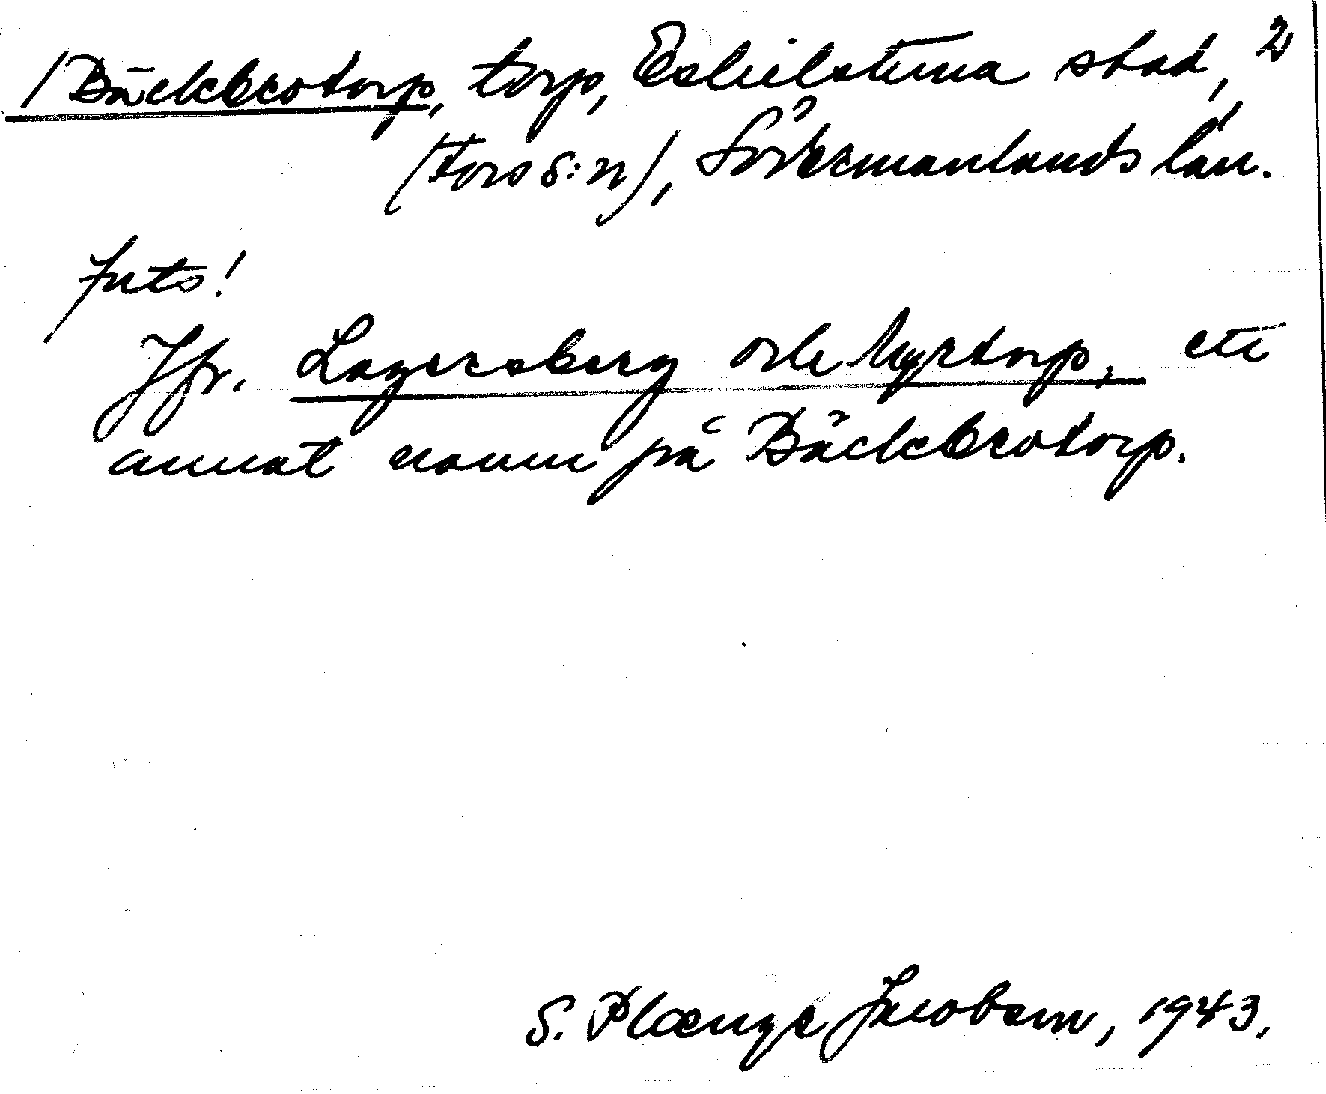 /Bäckbrotorp, torp, Eskilstuna stad, 2
(Fors s:n), Södermanlands län.
Finns!
Jfr. Lagersberg och Nyrtorp, ett
annat namn på Bäckbrotorp.
S. Plænge Jacobson, 1943.